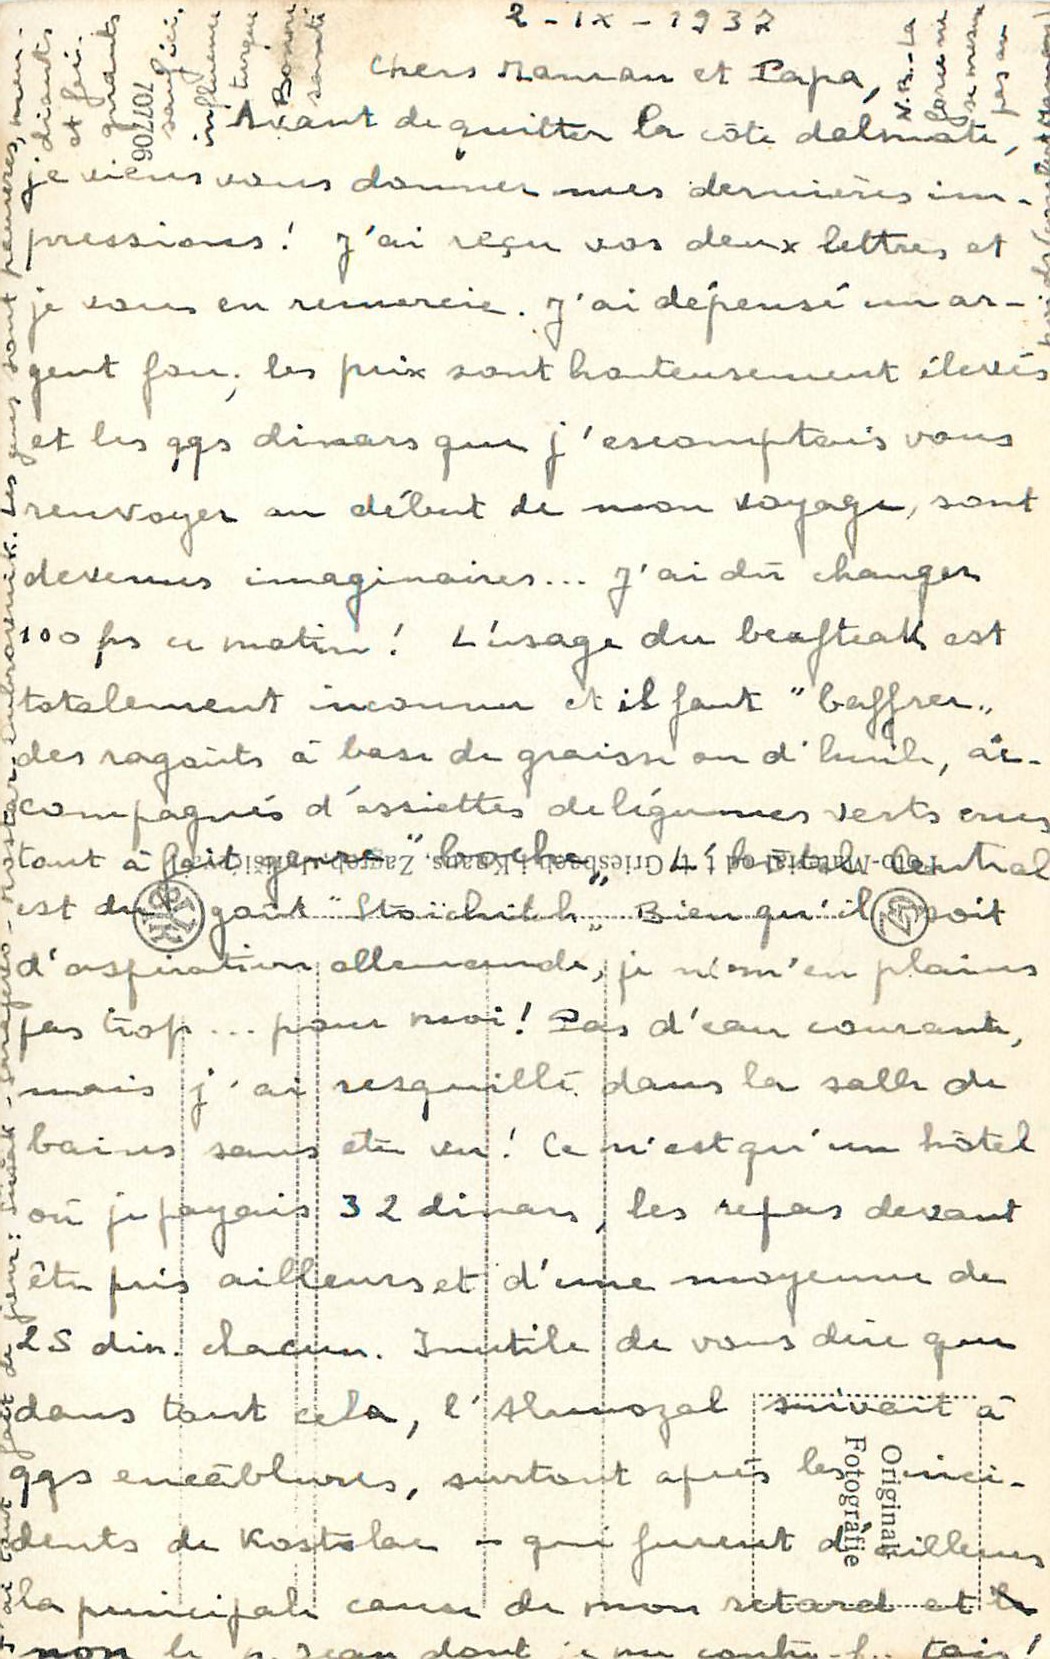 2-IX-1937
Chers Maman et Papa,
Avant de quitter la côte dalmate,
je viens vous donner mes dernières im-
pressions! J'ai reçu vos deux lettres et
je vous en remercie. J'ai dépensé un ar-
gent fou; les prix sont honteusement élevés
et les qqs dinars que j'escomptais vous
renvoyer au début de mon voyage, sont
devenus imaginaires... J'ai dû changer
100 frs ce matin! L'usage du beafteak est
totalement inconnu et il faut "baffrer"
des ragoûts à base de graisse ou d'huile, ac-
compagnés d'assiettes de légumes verts crus
tout à fait genre "boche". L'hôtel Central
est du goût "Stoïchitch". Bien qu'il soit
d'aspiration allemande, je ne m'en plains
pas trop... pour moi! Pas d'eau courante,
mais j'ai resquillé dans la salle de
bains sans être vu! Ce n'est qu'un hôtel
où je payais 32 dinars, les repas devant
être pris ailleurs et d'une moyenne de
25 din. chacun. Inutile de vous dire que
dans tout cela, l'Almozal suivait à
qqs encâblures, surtout après les inci-
dents de Kostolac - qui furent d'ailleurs
la principale cause de mon retard et
non le
J'ai tout fait de fieur: Susak - Sarajevo - Mostar - Dubrovnik. Les gens sont pauvres, men-
diants
et fai-
gnants
sauf ici.
influence
turque
Bonne
santé
N.B. - La
se mesure
pas au
poids
707706
Foto-Material od Griesbach i Knaus, Zagreb, Jurišićeva 1
Original
Fotografije